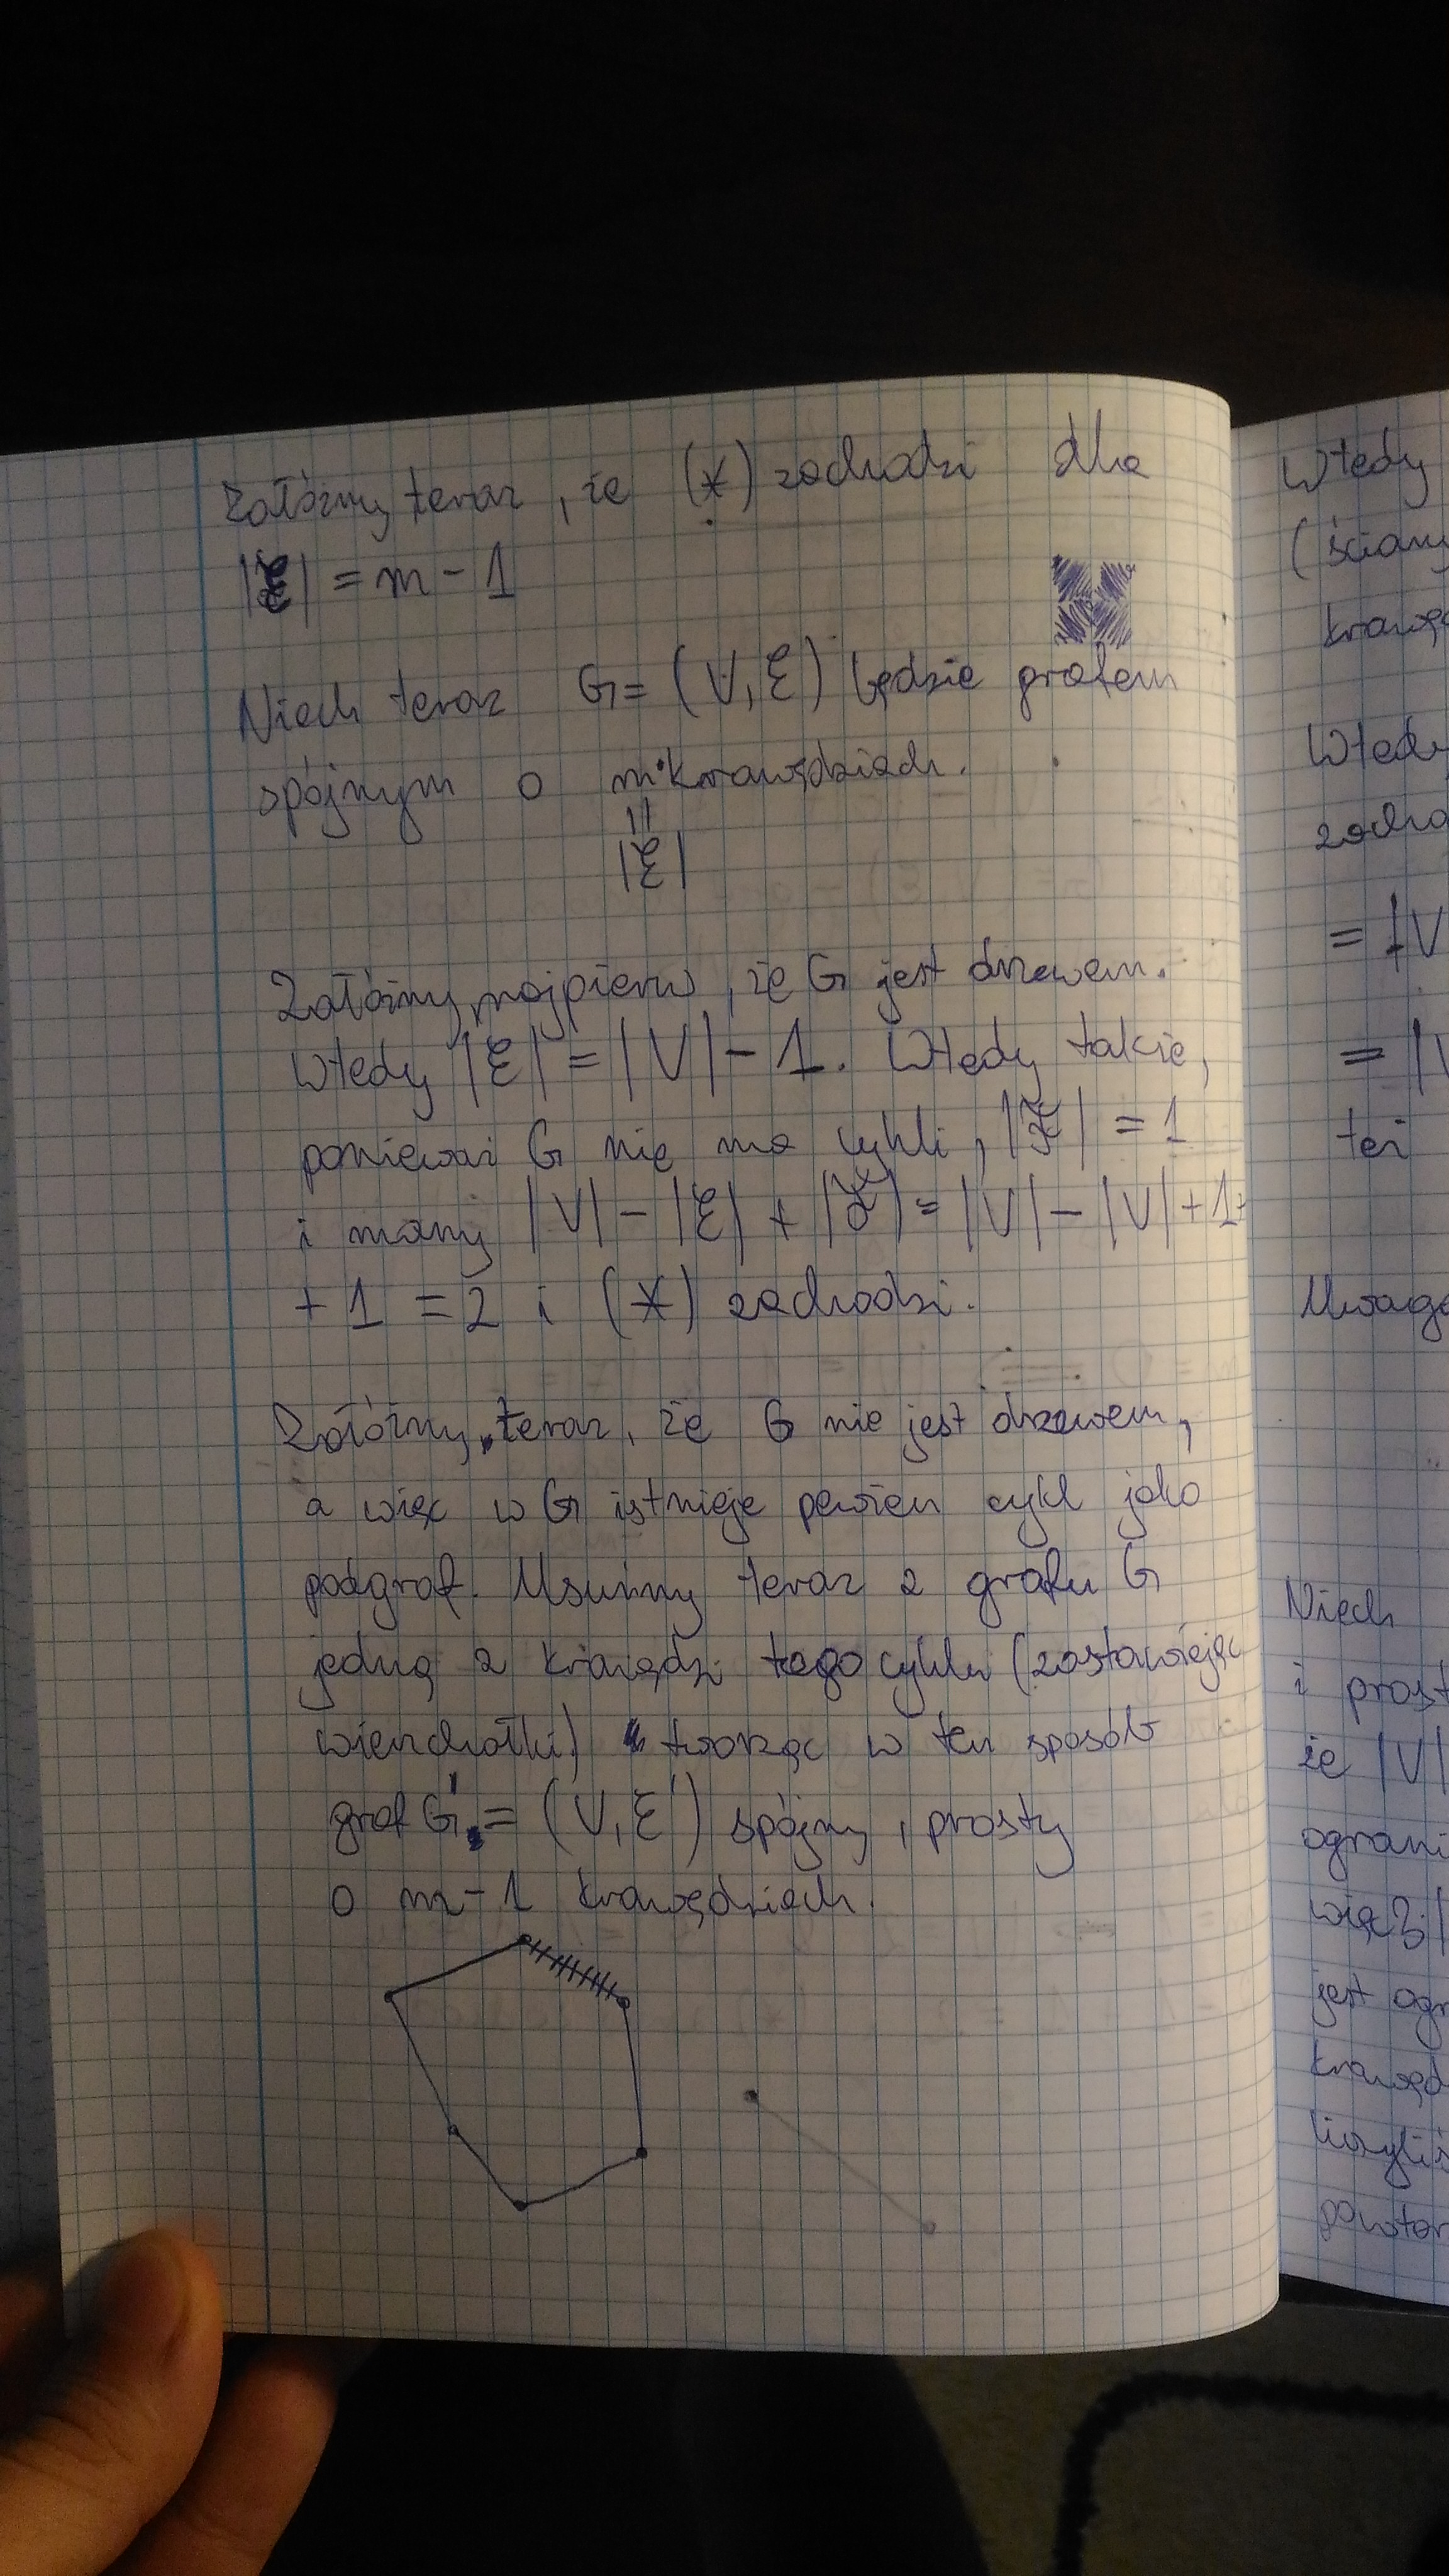 Załóżmy teraz, że (*) zachodzi dla
|E| = m - 1
Niech teraz G = (V, E) będzie grafem
spójnym o m krawędziach.
||
|E|
Załóżmy najpierw, że G jest drzewem.
Wtedy |E| = |V| - 1. Wtedy także,
ponieważ G nie ma cykli, |F| = 1
i mamy |V| - |E| + |F| = |V| - |V| + 1 +
+ 1 = 2 i (*) zachodzi.
Załóżmy teraz, że G nie jest drzewem,
a więc w G istnieje pewien cykl jako
podgraf. Usuńmy teraz z grafu G
jedną z krawędzi tego cyklu (zostawiając
wierzchołki) tworząc w ten sposób
graf G' = (V, E') spójny, prosty
o m - 1 krawędziach.
Wtedy
(ściany
Wtedy
= |V
= |V
też
Niech
i prost
że |V|